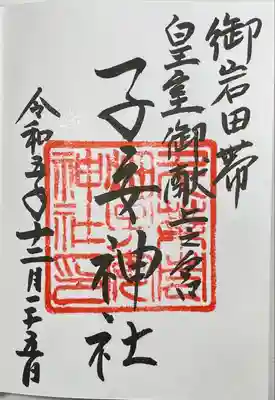 御岩田帯
皇室御献上宮
子安神社
令和五年十二月二十五日